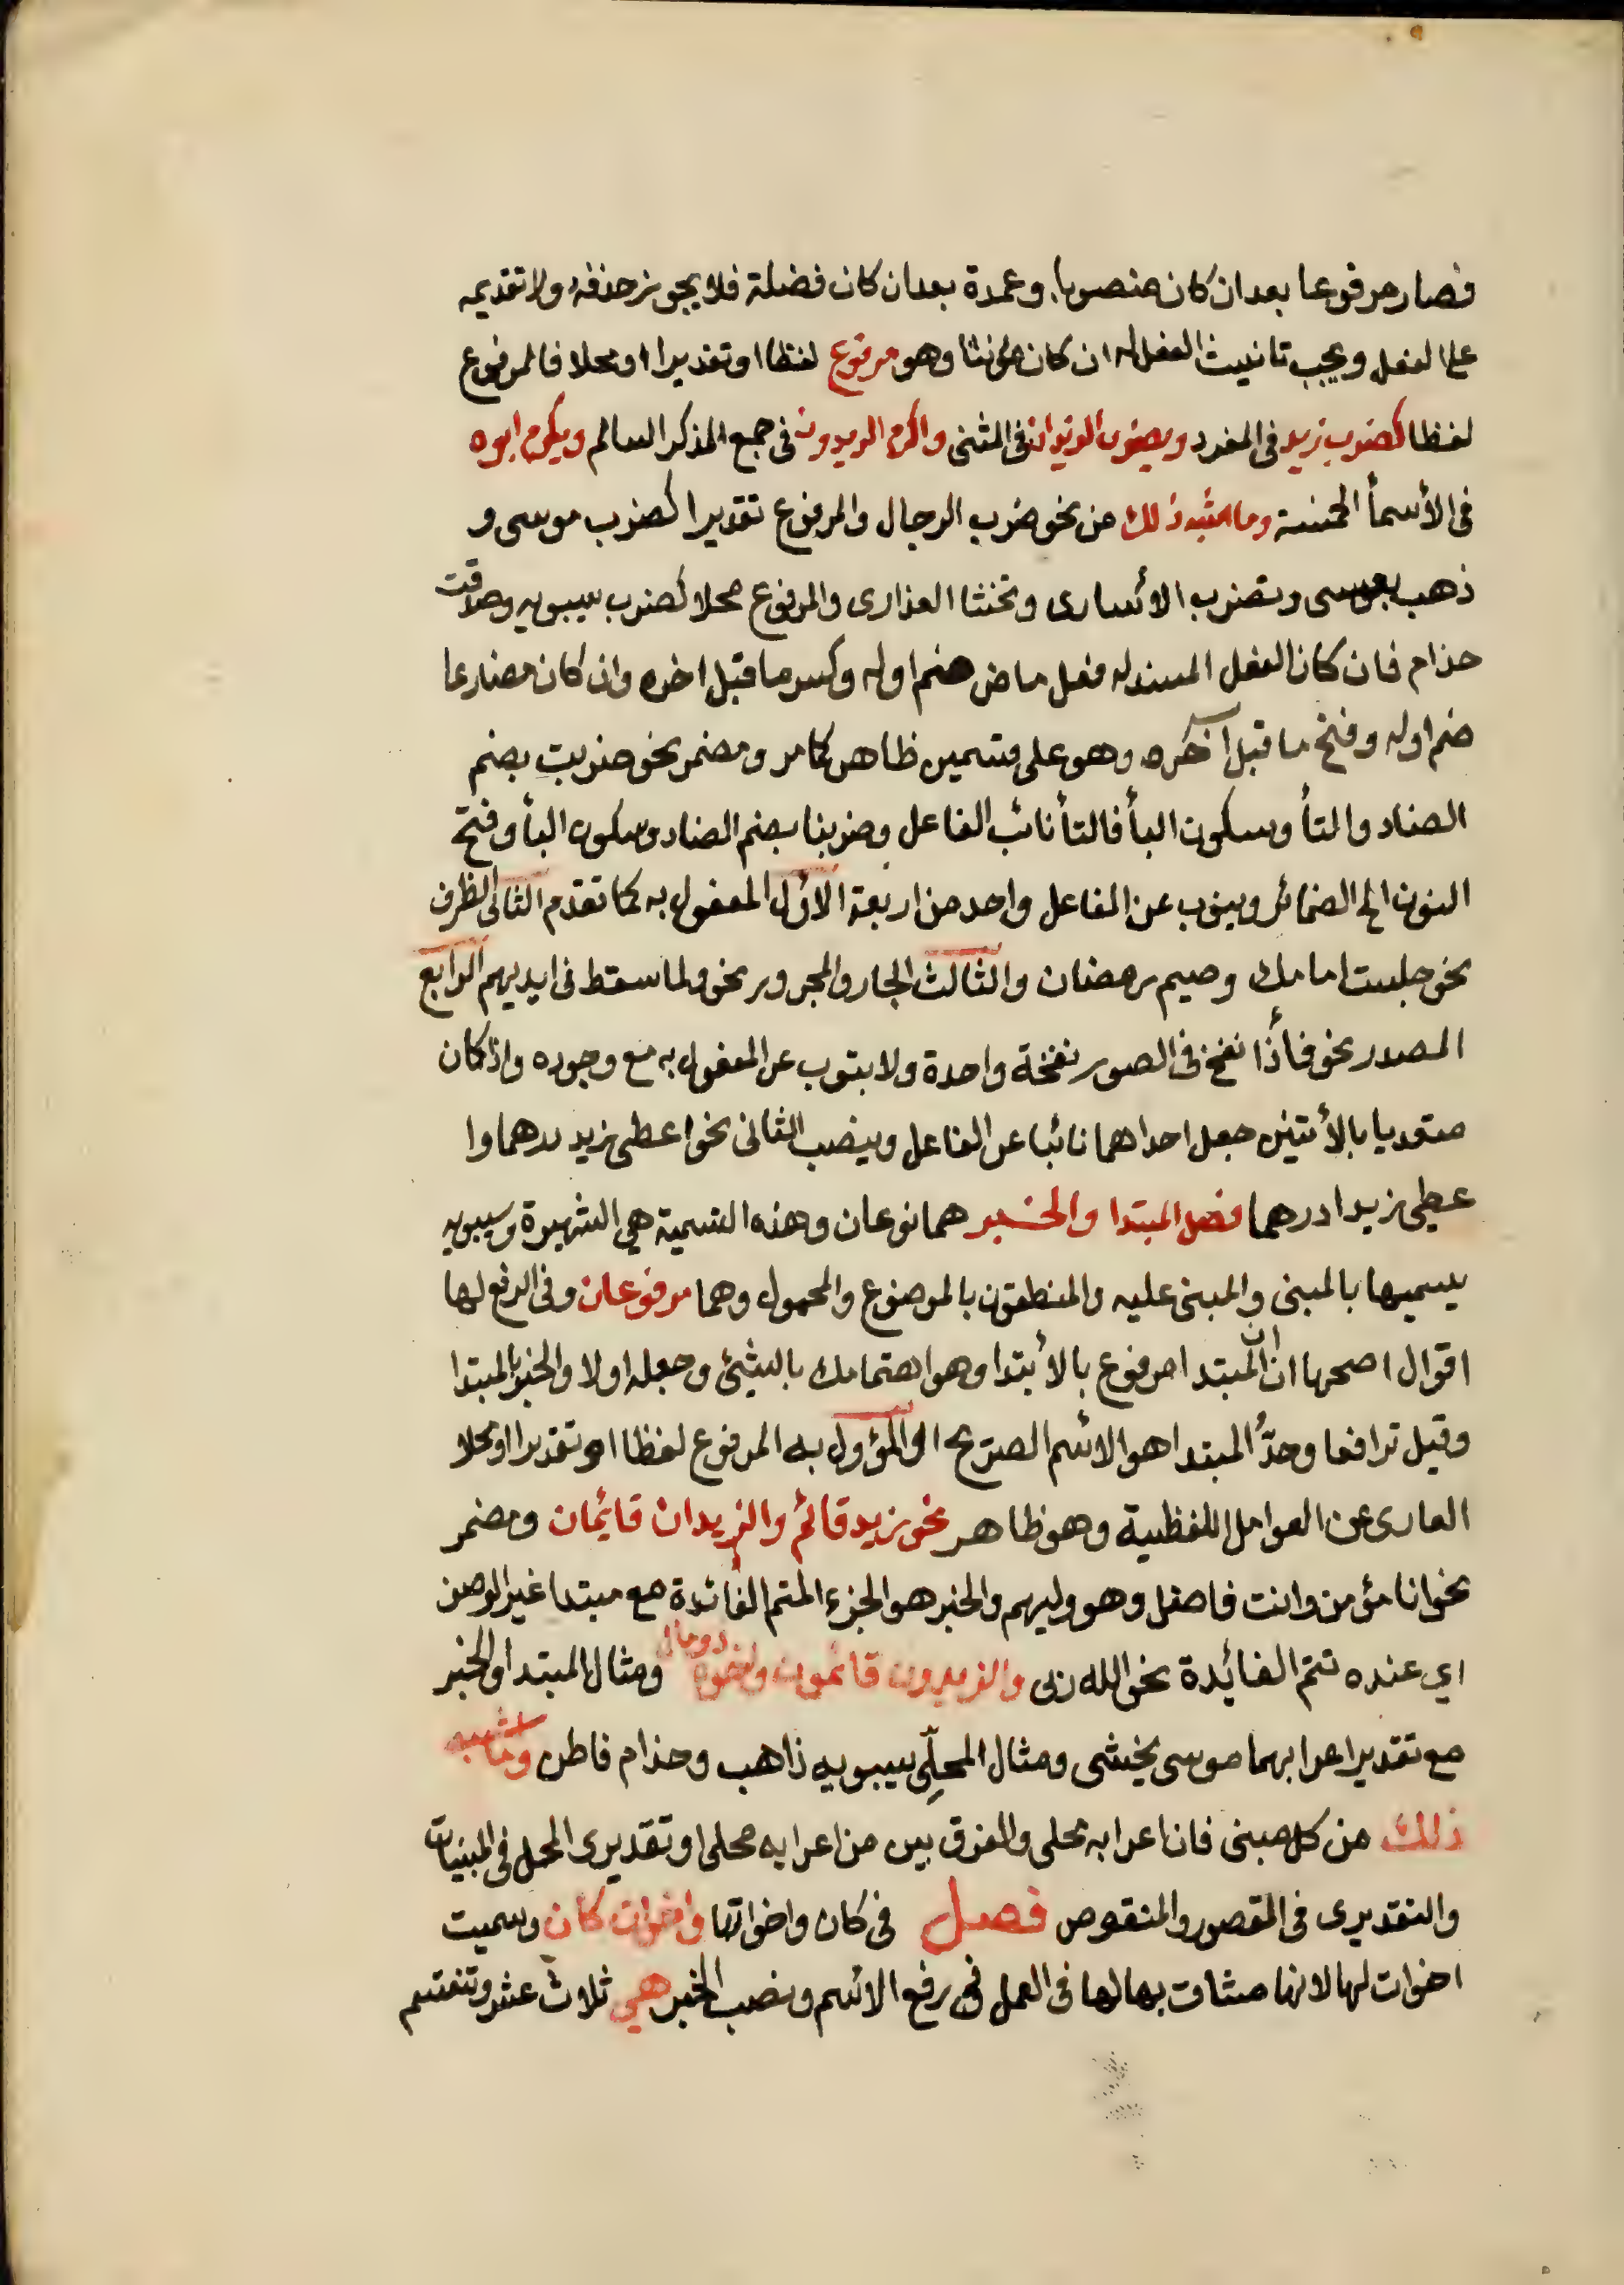 فصار مرفوعا بعد ان كان منصوبا. وعمدة بعد ان كان فضلة فلا يجوز حذفه ولا تقديمه
على الفعل ويجب تانيث الفعل له ان كان مؤنثا وهو مرفوع لفظا او تقديرا او محلا فالمرفوع
لفظا كضرب زيد فى المفرد ويضرب الزيدان فى المثنى واكرم الزيدون فى جمع المذكر السالم ويكرم ابوه
فى الأسمأ الخمسة وما اشبه ذلك من نحو ضرب الرجال والمرفوع تقديرا كضرب موسى و
ذهب بعيسى وتضرب الأسارى وتخنثا العذارى والمرفوع محلا كضرب سيبويه وصدقت
حذام فان كان الفعل المسند له فعل ماض ضم اوله وكسر ما قبل اخره وان كان مضارعا
ضم اوله وفتح ما قبل آخره وهو على قسمين ظاهر كما مر ومضمر نحو ضربت بضم
الضاد والتأ وسكون البأ فالتأ نائب الفاعل وضربنا بضم الضاد وسكون البأ وفتح
النون الخ الضمائر وينوب عن الفاعل واحد من اربعة الأول المفعول به كما تقدم الثانى الظرف
نحو جلست امامك وصيم رمضان والثالث الجار والمجرور نحو ولما سقط فى ايديهم الرابع
المصدر نحو فأذا نفخ فى الصور نفخة واحدة ولا ينوب عن المفعول به مع وجوده واذا كان
متعديا بالأثنين جعل احداهما نائبا عن الفاعل وينصب الثانى نحو اعطى زيد درهما وا
عطي زيدا درهما فصل المبتدا والخبر هما نوعان وهذه التسمية هي الشهيرة وسيبويه
يسميها بالمبنى والمبنى عليه والمنطقون بالموضوع والمحمول وهما مرفوعان وفى الرفع لها
اقوال اصحها ان المبتدا مرفوع بالأبتدا وهو اهتمامك بالشيئ وجعله اولا والخبر بالمبتدا
وقيل ترافعا وحدُّ المبتدا هو الاسم الصريح او المؤول به المرفوع لفظا او تقديرا او محلا
العارى عن العوامل اللفظية وهو ظاهر نحو زيد قائم والزيدان قايمان ومضمر
نحو انا مؤمن وانت فاضل وهو وليهم والخبر هو الجزء المتم الفائدة مع مبتدا غير الوصف
اي عنده تتم الفائدة نحو الله ربى والزيدون قائمون واخوه ذو مال ومثال المبتدا والخبر
مع تقدير اعرابهما موسى يخشى ومثال المحلّى سيبويه ذاهب وحذام فاطن وما اشبه
ذلك من كل مبنى فان اعرابه محلى والفرق بين من اعرابه محلى او تقديرى المحل فى المبنيات
والتقديرى فى المقصور والمنقوص فصل فى كان واخواتها واخوات كان وسميت
اخوات لها لانها مشات بها لها فى العمل فى رفع الاسم ونصب الخبر هي ثلاث عشر وتنقسم